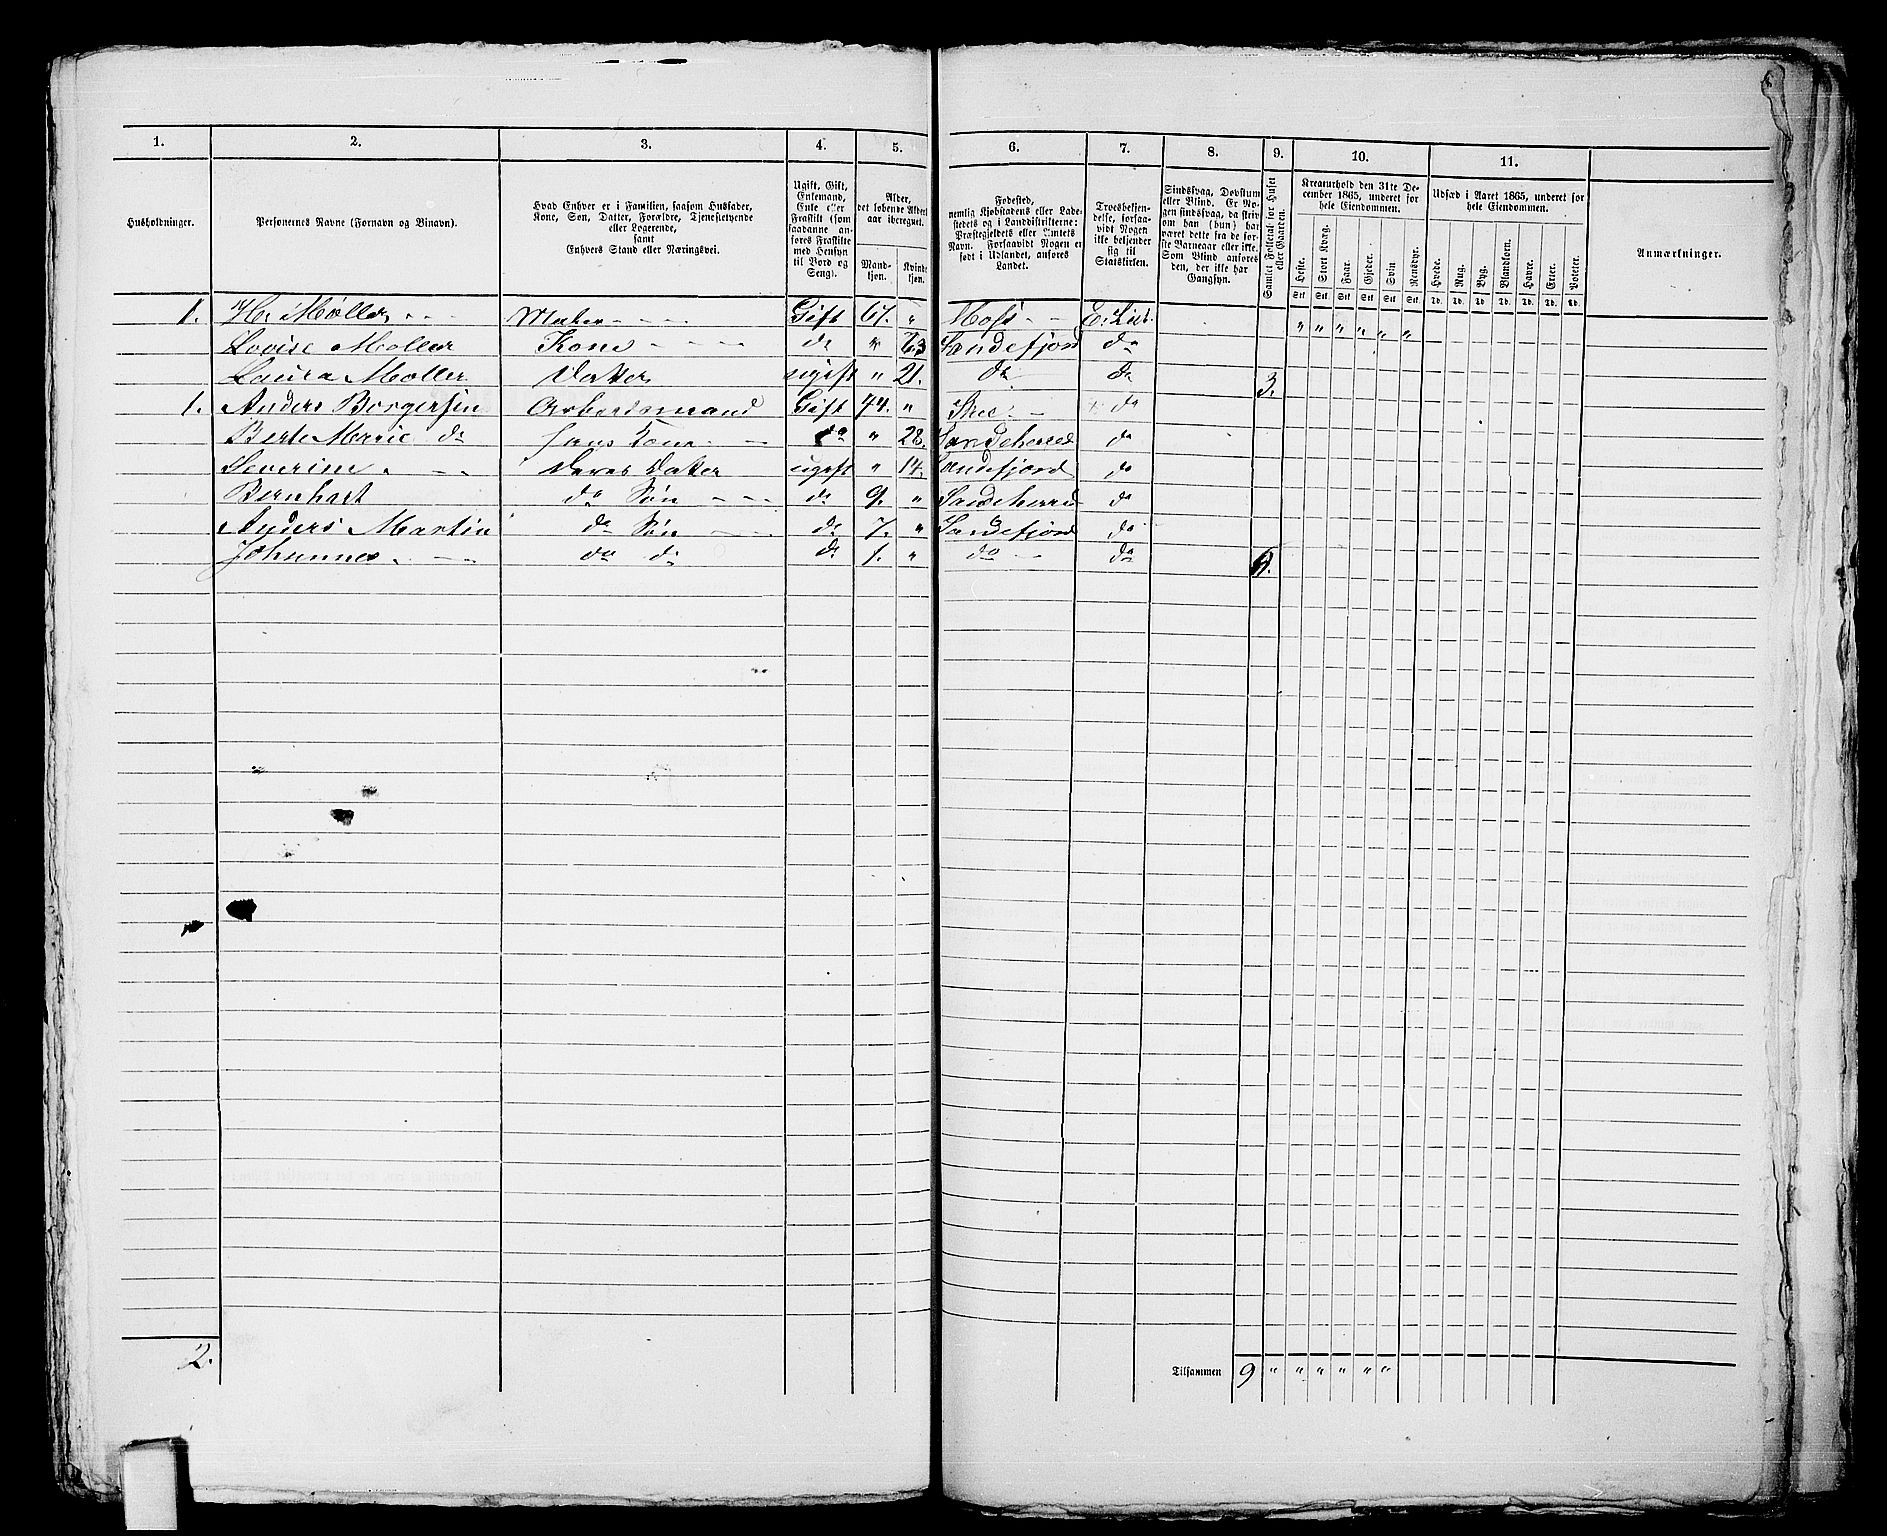 1. 2. 3. 4. 5. 6. 7. 8. 9. 10. 11.
Husholdninger.
Personernes Navne (Fornavn og Binavn).
Hvad Enhver er i Familien, saasom Husfader, Kone, Søn, Datter, Forældre, Tjenestetyende eller Logerende, samt Enhvers Stand eller Næringsvei.
Ugift, Gift, Enkemand, Enke eller Fraskilt (som saadanne anføres Fraskilte med Hensyn til Bord og Seng).
Alder, det løbende Alders aar iberegnet.
Mandkjøn. Kvindekjøn.
Fødested, nemlig Kjøbstadens eller Ladestedets og i Landdistrikterne: Præstegjeldets eller Amtets Navn. Forsaavidt Nogen er født i Udlandet, anføres Landet.
Troesbekjendelse, forsaavidt Nogen ikke bekjender sig til Statskirken.
Sindssvag, Døvstum eller Blind. Er Nogen sindssvag, da skrives om han (hun) har været dette fra de første Barneaar eller ikke. Som Blind anføres den, der ikke har Gangsyn.
Samlet Folketal for Huset eller Gaarden.
Kreaturhold den 31te December 1865, underet for hele Eiendommen.
Heste. Stort Kvæg. Faar. Gjeder. Svin Rensdyr.
Stk. Stk. Stk. Stk. Stk. Stk.
Udsæd i Aaret 1865, underet for hele Eiendommen.
Hvede. Rug. Byg. Blandkorn. Havre. Erter. Poteter.
Td. Td. Td. Td. Td. Td. Td.
Anmærkninger.
1. Møller Gift 67. " Moss E. Luth. " " " " " "
Lovise Møller Kone do " Sandefjord do
Laura Møller Datter ugift " 21. do do 3.
1. Anders Borgersen Arbeidsmand Gift 74. " Skee do
Berte Marie do Hans Kone do " 28. Sandeherred do
Severine Deres Datter ugift " 14. Sandefjord do
Bernhart do Søn do 9. " Sandeherred do
Anders Martin do Søn do 7. " Sandefjord do
Johannes do do do 1. " do do 6.
2.
Tilsammen 9 " " " " " "